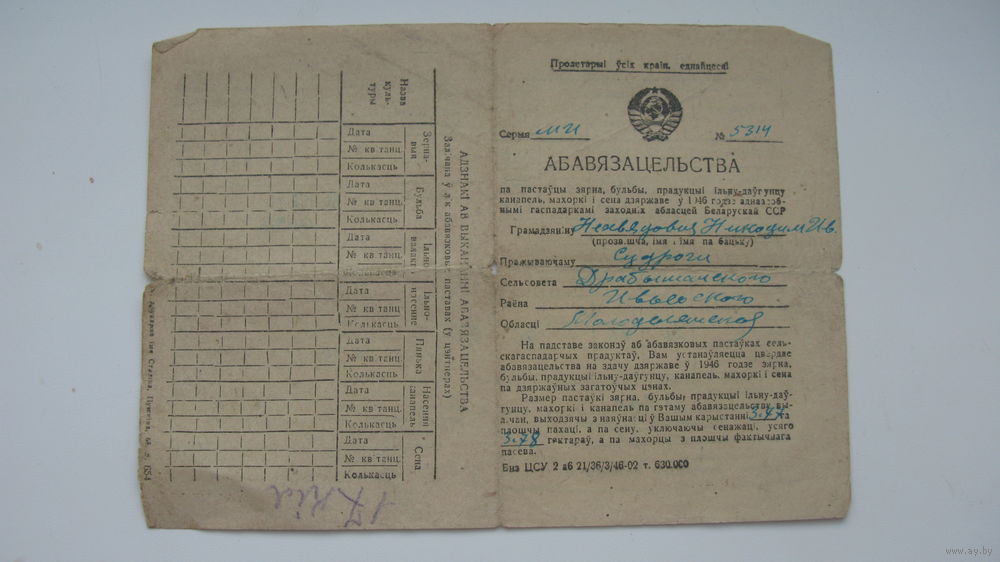 Пролетарыі ўсіх краін, еднайцеся!
Серыя МИ № 5314
АБАВЯЗАЦЕЛЬСТВА
па пастаўцы зярна, бульбы, прадукцыі ільну-даўгунцу
канапель, махоркі і сена дзяржаве ў 1946 годзе адназоб-
нымі гаспадаркамі заходніх абласцей Беларускай ССР
Грамадзяніну Никодим Ив.
(прозвішча, імя і імя па бацьку)
Пражываючаму Судроги
Сельсовета
Раёна Ивьевского
Обласці
На падставе законаў аб абавязковых пастаўках сель-
скагаспадарчых прадуктаў, Вам устанаўляецца цвердае
абавязательства на здачу дзяржаве ў 1946 годзе зярна,
бульбы, прадукцыі ільну-даўгунцу, канапель, махоркі і сена
па дзяржаўных загатоўчых цэнах.
Размер пастаўкі зярна, бульбы, прадукцыі ільну-даў-
гунцу, махоркі і канапель па гэтаму абавязацельству вы-
лічан, выходзячы з наяўнасці ў Вашым карыстанні 3.77 га
плошчы пахаці, а па сену, уключаючы сенажаці, усяго
3.78 гектараў, а па махорцы з плошчы фактычнага
пасева.
Биз ЦСУ 2 аб 21/36/3/46-02 т. 630.000
АДЗНАКІ АБ ВЫКАНАННІ АБАВЯЗАЦЕЛЬСТВА
Залічана ў лік абавязковых паставак (у цэнтнерах)
Назва куль-туры
Зерна-выя
Дата
№ кв танц.
Колькасць
Бульба
Дата
№ кв танц.
Колькасць
Ільно-
Дата
№ кв танц.
Колькасць
Ільно-насенне
Дата
№ кв танц.
Колькасць
Пянька
Дата
№ кв танц.
Колькасць
Насення канапель
Дата
№ кв танц.
Колькасць
Сена
Дата
№ кв танц.
Колькасць
Друкарня імя Сталіна, Пушкіна, 55. з. 654
www.ay.by